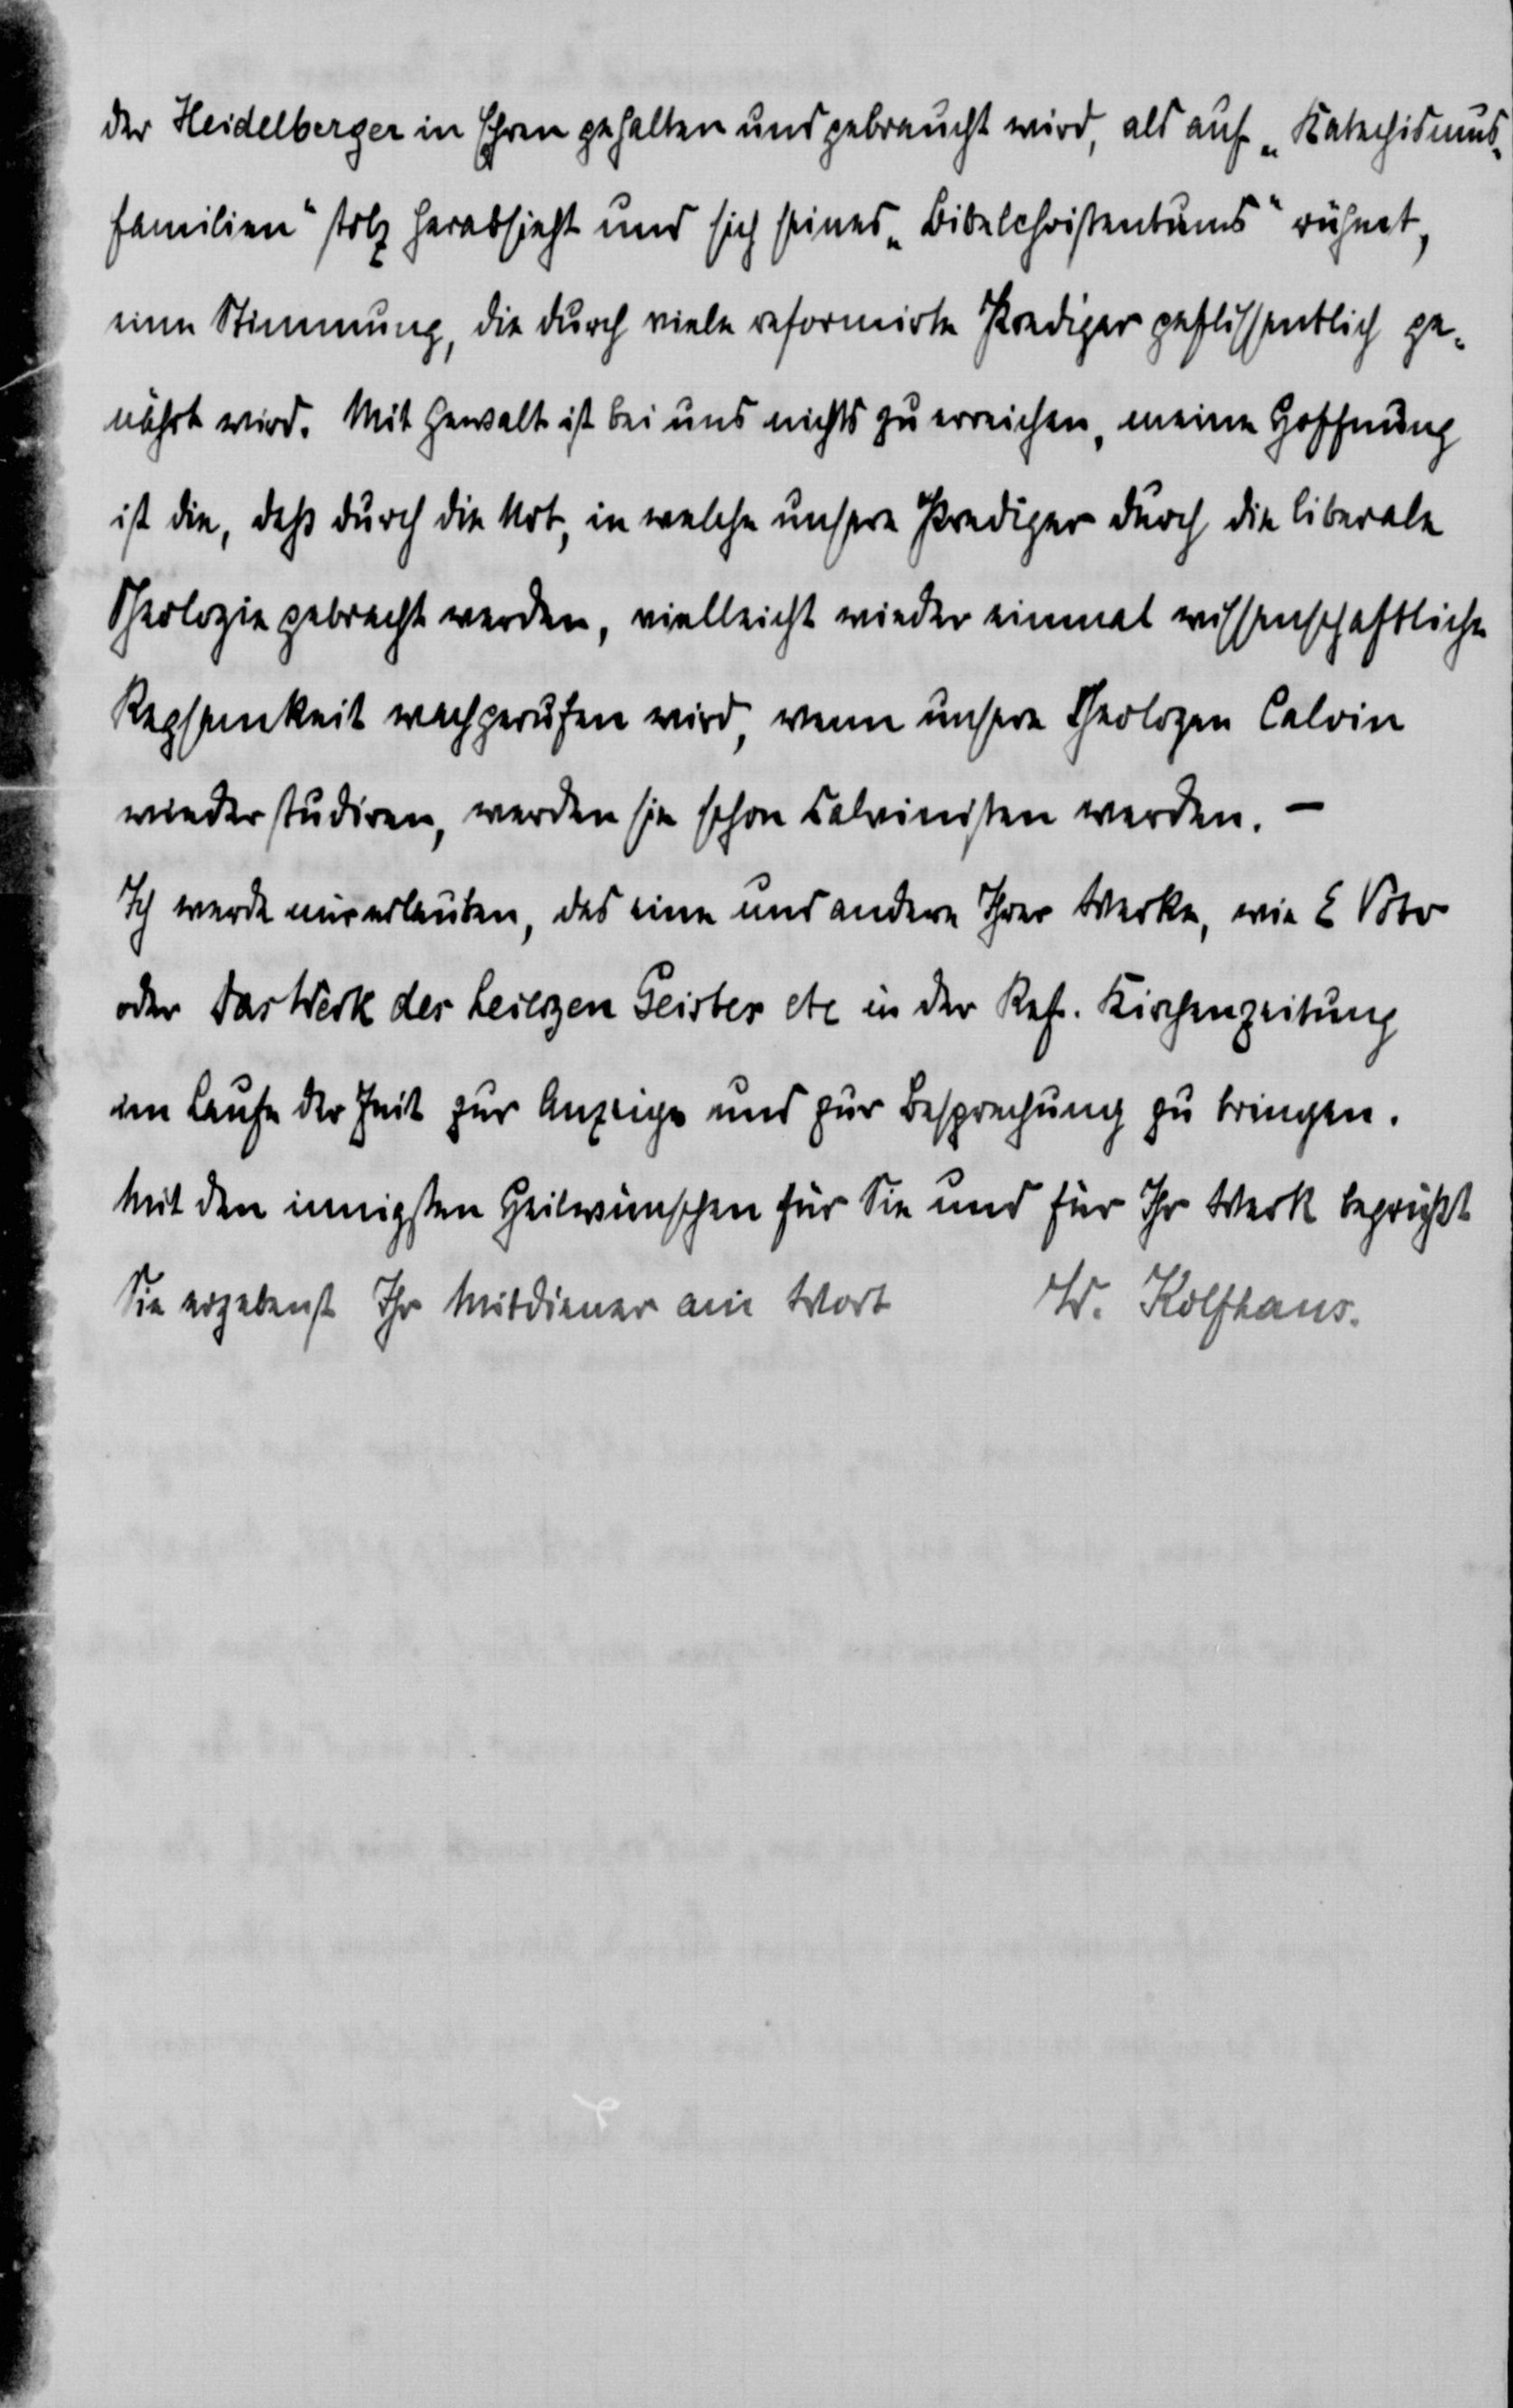 der Heidelberger in Ehren gehalten und gebraucht wird, als auf „Katechismus-
familien“ stolz herabsieht und sich seines „Bibelchristentums“ rühmt,
eine Stimmung, die durch viele reformirte Prediger geflissentlich ge-
nährt wird. Mit Gewalt ist bei uns nichts zu erreichen, meine Hoffnung
ist die, daß durch die Not, in welche unsere Prediger durch die liberale
Theologie gebracht werden, vielleicht wieder einmal wissenschaftliche
Regsamkeit wachgerufen wird, wenn unsere Theologen Calvin
wieder studiren, werden sie schon Calvinisten werden. —
Ich werde mir erlauben, das eine und andere Ihrer Werke, wie E Voto
oder das Werk des heiligen Geistes etc in der Ref. Kirchenzeitung
im Laufe der Zeit zur Anzeige und zur Besprechung zu bringen.
Mit den innigsten Heilwünschen für Sie und für Ihr Werk begrüßt
Sie ergebenst Ihr Mitdiener am Wort W. Kolfhaus.